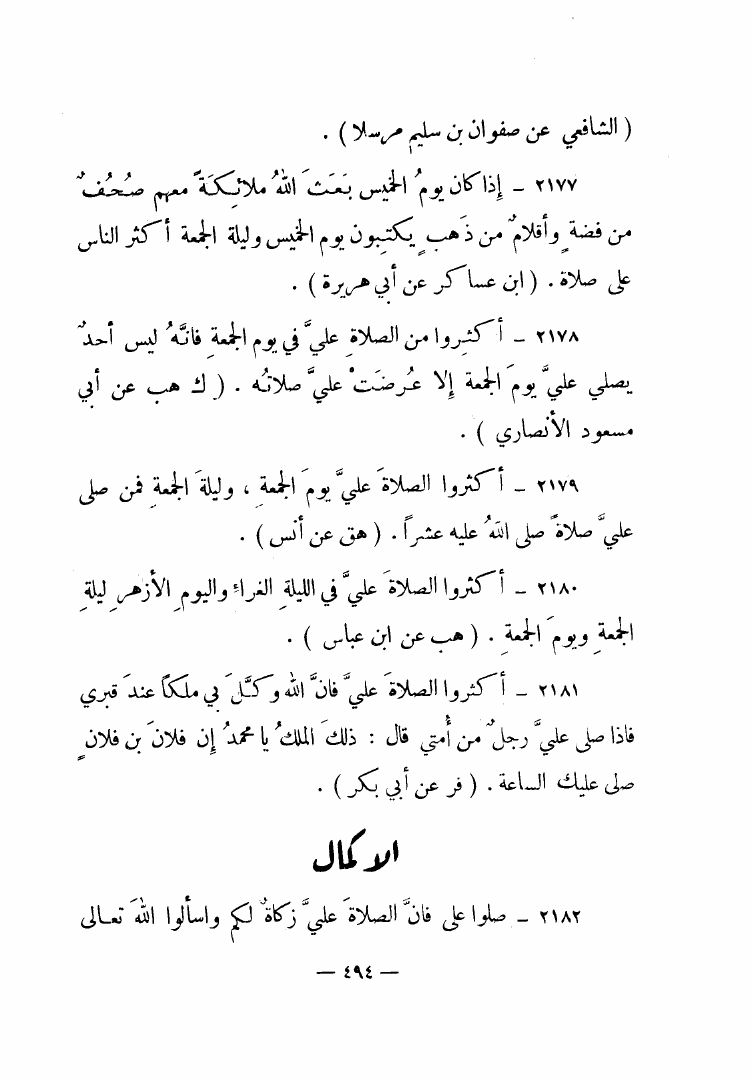 ( الشافعي عن صفوان بن سليم مرسلا ) .
٢١٧٧ – إذا كان يومُ الخميس بَعَثَ اللهُ ملائِكَةً معهم صُحُفٌ
من فضةٍ وأقلامٌ من ذَهبٍ يكتبِون يوم الخميس وليلة الجمعة أكثر الناس
على صلاة . ( ابن عساكر عن أبي هريرة ) .
٢١٧٨ – أكثِروا من الصلاةِ عليَّ في يوم الجمعةِ فانَّهُ ليس أحدٌ
يصلي عليَّ يومَ الجمعة إلا عُرضَتْ عليَّ صلاتُه . ( ك هب عن أبي
مسعود الأنصاري ) .
٢١٧٩ – أكثروا الصلاةَ عليَّ يومَ الجمعةِ ، وليلةَ الجمعةِ فمن صلى
عليَّ صلاةً صلى اللهُ عليه عشراً . ( هق عن أنس ) .
٢١٨٠ – أكثروا الصلاةَ عليَّ في الليلةِ الغراءِ واليومِ الأزهرِ ليلةِ
الجمعةِ ويومَ الجمعةِ . ( هب عن ابن عباس ) .
٢١٨١ – أكثروا الصلاةَ عليَّ فانَّ الله وكَّلَ بي ملَكاً عندَ قبري
فاذا صلى عليَّ رجلٌ من أُمتي قال : ذلكَ الملكُ يا محمدُ إن فلانَ بن فلانٍ
صلى عليك الساعة . ( فر عن أبي بكر ) .
الاكمال
٢١٨٢ – صلوا على فانَّ الصلاةَ عليَّ زكاةٌ لكم واسألوا اللهَ تعالى
— ٤٩٤ —